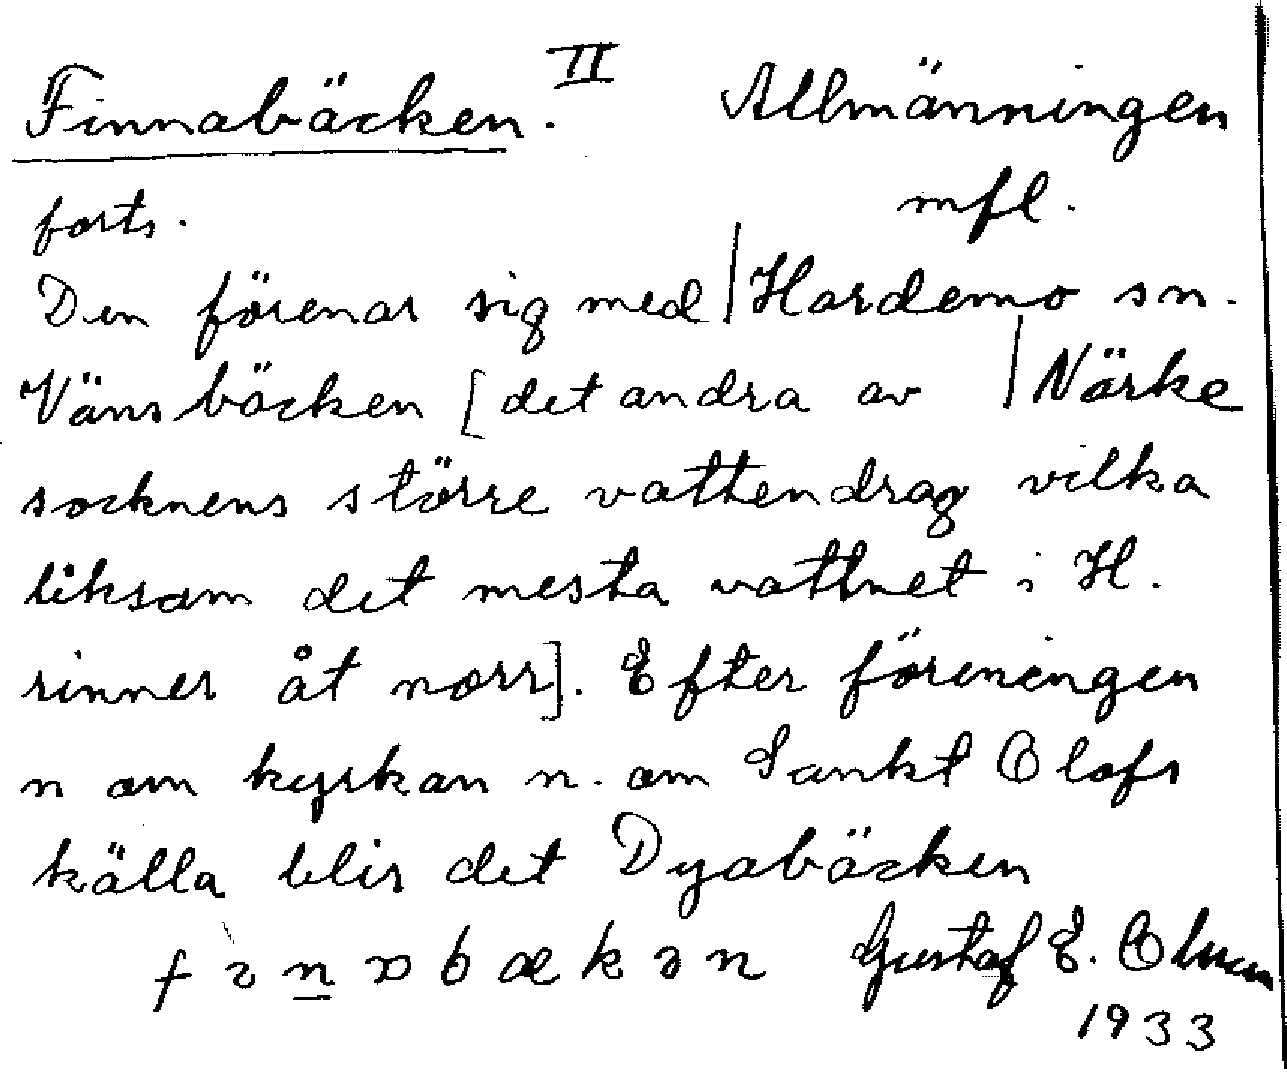 Finnabäcken. II Allmänningen
forts. mfl.
Den förenar sig med | Hardemo sn.
Vänsbäcken [det andra av | Närke
socknens större vattendrag vilka
liksom det mesta vattnet i H.
rinner åt norr]. Efter föreningen
n om kyrkan n. om Sankt Olofs
källa blir det Dyabäcken
Gustaf E.
1933